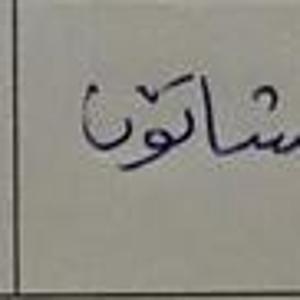 شاتۆن